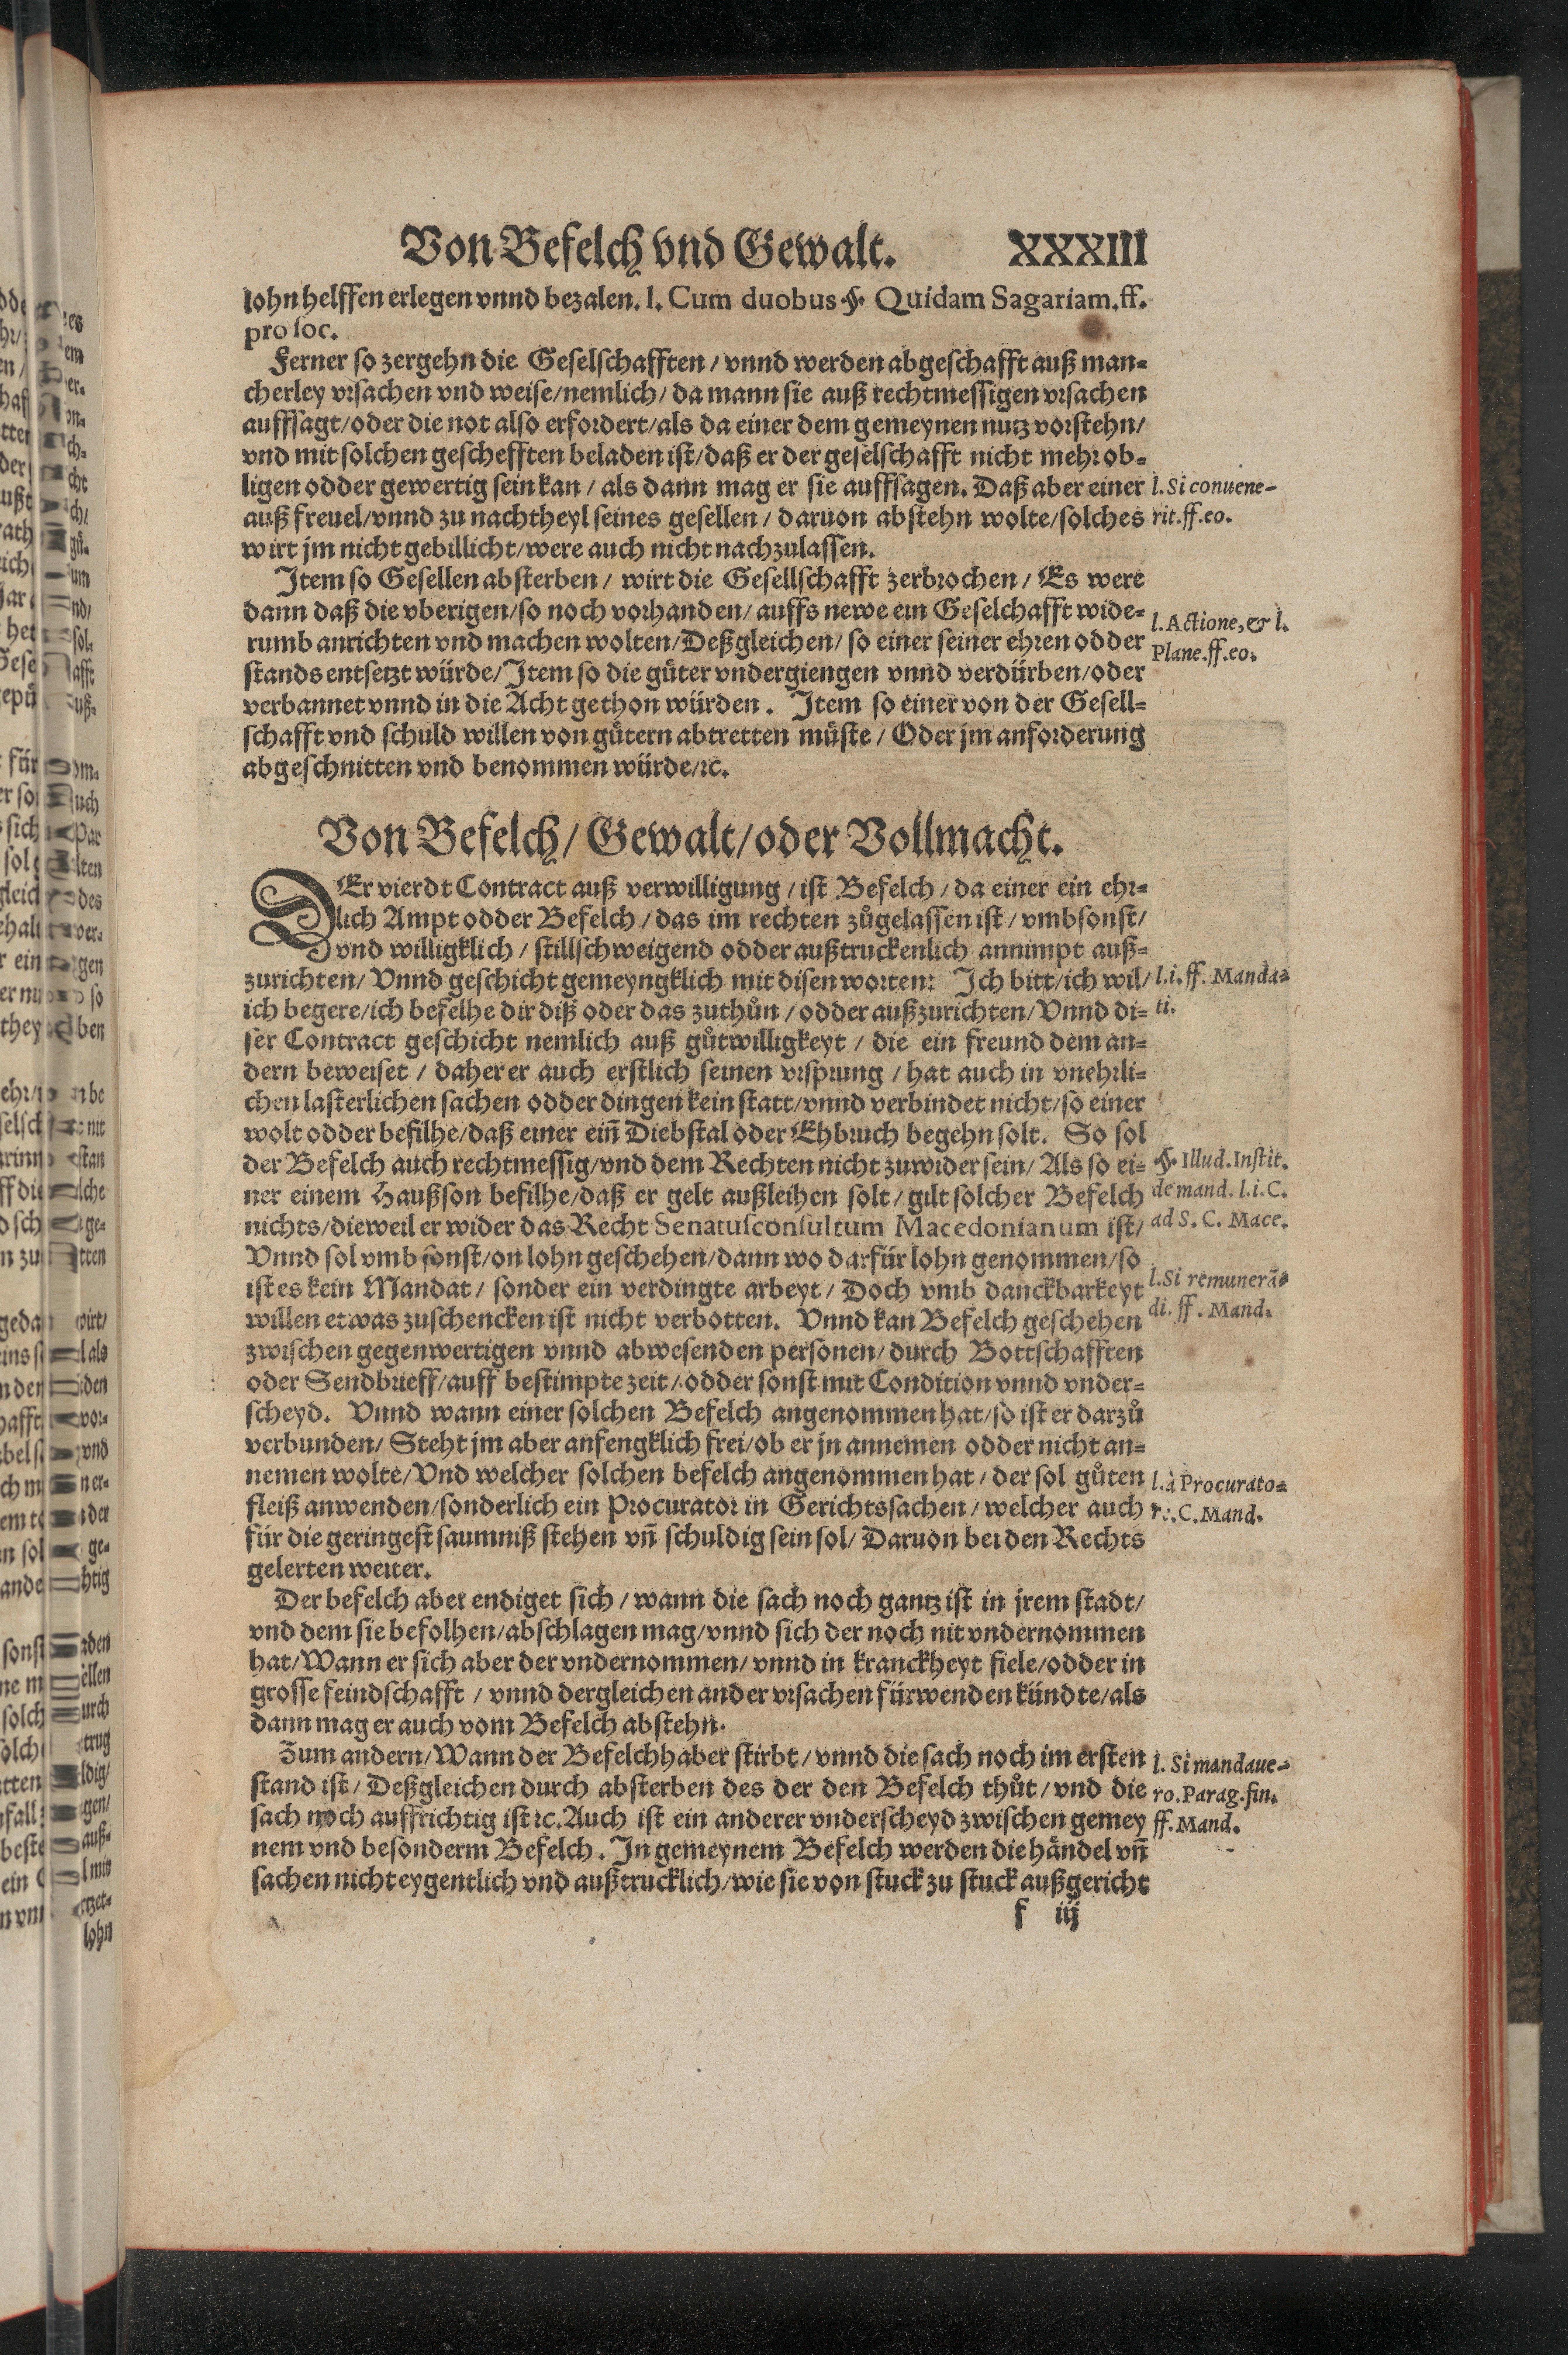 Von Befelch vnd Gewalt. XXXIII
lohn helffen erlegen vnnd bezalen. l. Cum duobus §. Quidam Sagariam. ff.
pro soc.
Ferner so zergehn die Geselschafften / vnnd werden abgeschafft auß man-
cherley vrsachen vnd weise/nemlich/ da mann sie auß rechtmessigen vrsachen
auffsagt/oder die not also erfordert/als da einer dem gemeynen nutz vorstehn/
vnd mit solchen geschefften beladen ist/daß er der geselschafft nicht mehr ob-
ligen odder gewertig sein kan / als dann mag er sie auffsagen. Daß aber einer
auß freuel/vnnd zu nachtheyl seines gesellen / daruon abstehn wolte/solches
wirt jm nicht gebillicht/were auch nicht nachzulassen.
l. Si conuene-
rit. ff. eo.
Item so Gesellen absterben / wirt die Gesellschafft zerbrochen / Es were
dann daß die vberigen/so noch vorhanden/ auffs newe ein Geselchafft wide-
rumb anrichten vnd machen wolten/Deßgleichen/ so einer seiner ehren odder
stands entsetzt würde/Item so die gůter vndergiengen vnnd verdürben/oder
verbannet vnnd in die Acht gethon würden. Item so einer von der Gesell-
schafft vnd schuld willen von gůtern abtretten můste / Oder jm anforderung
abgeschnitten vnd benommen würde/ꝛc.
l. Actione, & l.
Plane. ff. eo.
Von Befelch/ Gewalt/oder Vollmacht.
DEr vierdt Contract auß verwilligung / ist Befelch / da einer ein ehr-
lich Ampt odder Befelch / das im rechten zůgelassen ist / vmbsonst/
vnd willigklich / stillschweigend odder außtruckenlich annimpt auß-
zurichten/ Vnnd geschicht gemeyngklich mit disen worten: Ich bitt/ich wil/
ich begere/ich befelhe dir diß oder das zuthůn / odder außzurichten/Vnnd di-
ser Contract geschicht nemlich auß gůtwilligkeyt / die ein freund dem an-
dern beweiset / daher er auch erstlich seinen vrsprung / hat auch in vnehrli-
chen lasterlichen sachen odder dingen kein statt/vnnd verbindet nicht/so einer
wolt odder befilhe/daß einer ein̄ Diebstal oder Ehbruch begehn solt. So sol
der Befelch auch rechtmessig/vnd dem Rechten nicht zuwider sein/ Als so ei-
ner einem Haußson befilhe/daß er gelt außleihen solt/ gilt solcher Befelch
nichts/dieweil er wider das Recht Senatusconsultum Macedonianum ist/
Vnnd sol vmb sonst/on lohn geschehen/dann wo darfür lohn genommen/so
ist es kein Mandat / sonder ein verdingte arbeyt / Doch vmb danckbarkeyt
willen etwas zuschencken ist nicht verbotten. Vnnd kan Befelch geschehen
zwischen gegenwertigen vnnd abwesenden personen/ durch Bottschafften
oder Sendbrieff/auff bestimpte zeit/ odder sonst mit Condition vnnd vnder-
scheyd. Vnnd wann einer solchen Befelch angenommen hat/so ist er darzů
verbunden/ Steht jm aber anfengklich frei/ob er jn annemen odder nicht an-
nemen wolte/Vnd welcher solchen befelch angenommen hat / der sol gůten
fleiß anwenden/sonderlich ein Procurator in Gerichtssachen / welcher auch
für die geringest saumniß stehen vn̄ schuldig sein sol/ Daruon bei den Rechts
gelerten weiter.
l. i. ff. Manda-
ti.
§. Illud. Instit.
de mand. l. i. C.
ad S. C. Mace.
l. Si remunerā-
di. ff. Mand.
l. à Procurato-
re. C. Mand.
Der befelch aber endiget sich / wann die sach noch gantz ist in jrem stadt/
vnd dem sie befolhen/abschlagen mag/vnnd sich der noch nit vndernommen
hat/Wann er sich aber der vndernommen/ vnnd in kranckheyt fiele/odder in
grosse feindschafft / vnnd dergleichen ander vrsachen fürwenden kündte/als
dann mag er auch vom Befelch abstehn.
Zum andern/Wann der Befelchhaber stirbt / vnnd die sach noch im ersten
stand ist/ Deßgleichen durch absterben des der den Befelch thůt / vnd die
sach noch auffrichtig ist ꝛc. Auch ist ein anderer vnderscheyd zwischen gemey
nem vnd besonderm Befelch. In gemeynem Befelch werden die håndel vn̄
sachen nicht eygentlich vnd außtrucklich/wie sie von stuck zu stuck außgericht
l. Si mandaue-
ro. Parag. fin.
ff. Mand.
f iij